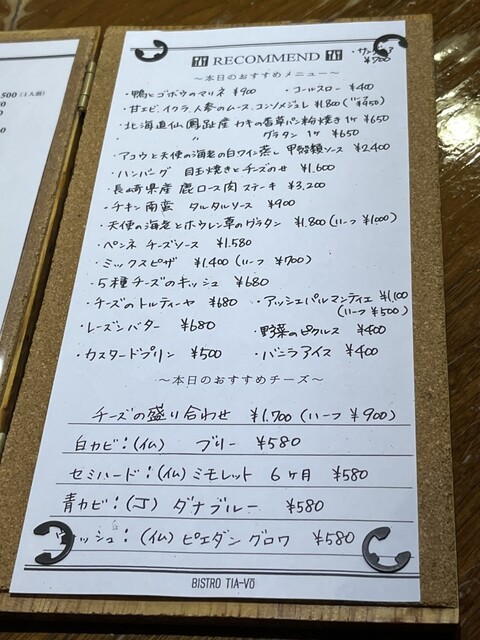 ・サングリア
¥700
RECOMMEND
〜本日のおすすめメニュー〜
・鴨とゴボウのマリネ ¥900 ・コールスロー ¥400
・甘エビ、イクラ、人参のムース、コンソメジュレ ¥1.800 (ハーフ ¥950)
・北海道仙鳳趾産 カキの香草パン粉焼き 1ケ ¥650
・ 〃 グラタン 1ケ ¥650
・アコウと天使の海老の白ワイン蒸し 甲殻類ソース ¥2.400
・ハンバーグ 目玉焼きとチーズのせ ¥1.600
・長崎県産 鹿ロース肉 ステーキ ¥3,200
・チキン南蛮 タルタルソース ¥900
・天使の海老とホウレン草のグラタン ¥1.800 (ハーフ ¥1000)
・ペンネ チーズソース ¥1.580
・ミックスピザ ¥1.400 (ハーフ ¥700)
・5種チーズのキッシュ ¥680
・チーズのトルティーヤ ¥680 ・アッシェパルマンティエ ¥1,100
(ハーフ ¥500)
・レーズンバター ¥680 ・野菜のピクルス ¥400
・カスタードプリン ¥500 ・バニラアイス ¥400
〜本日のおすすめチーズ〜
チーズの盛り合わせ ¥1.700 (ハーフ ¥900)
白カビ：(仏) ブリー ¥580
セミハード：(仏) ミモレット 6ヶ月 ¥580
青カビ：(丁) ダナブルー ¥580
ッシュ：(仏) ピエダングロワ ¥580
BISTRO TIA-VŌ